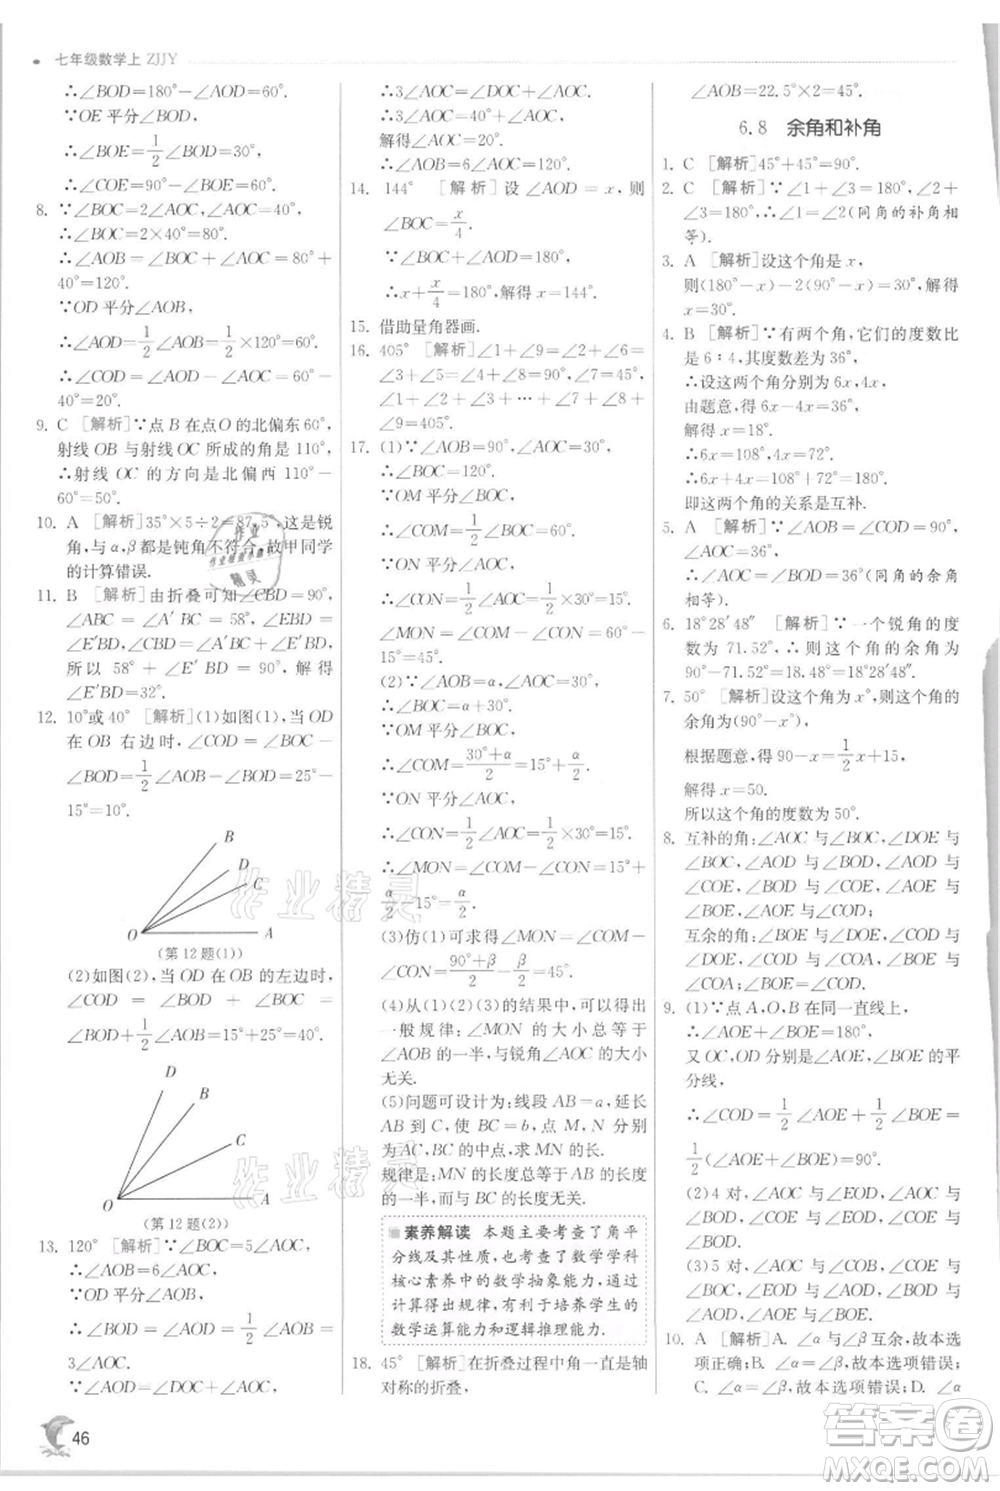 七年级数学上 ZJJY
∴∠BOD=180°-∠AOD=60°.
∵OE平分∠BOD,
∴∠BOE=1/2∠BOD=30°,
∴∠COE=90°-∠BOE=60°.
8. ∵∠BOC=2∠AOC,∠AOC=40°,
∴∠BOC=2×40°=80°.
∴∠AOB=∠BOC+∠AOC=80°+
40°=120°.
∵OD平分∠AOB,
∴∠AOD=1/2∠AOB=1/2×120°=60°.
∴∠COD=∠AOD-∠AOC=60°-
40°=20°.
9. C [解析]∵点B在点O的北偏东60°,
射线OB与射线OC所成的角是110°,
∴射线OC的方向是北偏西110°-
60°=50°.
10. A [解析]35°×5÷2=87.5°,这是锐
角,与α,β都是钝角不符合,故甲同学
的计算错误.
11. B [解析]由折叠可知∠CBD=90°,
∠ABC=∠A′BC=58°,∠EBD=
∠E′BD,∠CBD=∠A′BC+∠E′BD,
所以58°+∠E′BD=90°,解得
∠E′BD=32°.
12. 10°或40° [解析](1)如图(1),当OD
在OB右边时,∠COD=∠BOC-
∠BOD=1/2∠AOB-∠BOD=25°-
15°=10°.
B
D
C
O
A
(第12题(1))
(2)如图(2),当OD在OB的左边时,
∠COD=∠BOD+∠BOC=
∠BOD+1/2∠AOB=15°+25°=40°.
D
B
C
O
A
(第12题(2))
13. 120° [解析]∵∠BOC=5∠AOC,
∴∠AOB=6∠AOC.
∵OD平分∠AOB,
∴∠BOD=∠AOD=1/2∠AOB=
3∠AOC.
∵∠AOD=∠AOC+∠DOC,
46
∴3∠AOC=∠DOC+∠AOC.
∴3∠AOC=40°+∠AOC,
解得∠AOC=20°.
∴∠AOB=6∠AOC=120°.
14. 144° [解析]设∠AOD=x,则
∠BOC=x/4.
∵∠AOD+∠BOC=180°,
∴x+x/4=180°,解得x=144°.
15. 借助量角器画.
16. 405° [解析]∠1+∠9=∠2+∠6=
∠3+∠5=∠4+∠7=∠8+∠8=90°,
∴∠1+∠2+∠3+∠4+…+∠8+
∠9=405°.
17. (1)∵∠AOB=90°,∠AOC=30°,
∴∠BOC=120°.
∵OM平分∠BOC,
∴∠COM=1/2∠BOC=60°.
∵ON平分∠AOC,
∴∠CON=1/2∠AOC=1/2×30°=15°.
∠MON=∠COM-∠CON=60°-
15°=45°.
(2)∵∠AOB=α,∠AOC=30°,
∴∠BOC=α+30°.
∵OM平分∠BOC,
∴∠COM=30°+α/2=15°+α/2.
∵ON平分∠AOC,
∴∠CON=1/2∠AOC=1/2×30°=15°.
∴∠MON=∠COM-∠CON=15°+
α/2-15°=α/2.
(3)仿(1)可求得∠MON=∠COM-
∠CON=90°+β/2-β/2=45°.
(4)从(1)(2)(3)的结果中,可以得出
一般规律:∠MON的大小总等于
∠AOB的一半,与锐角∠AOC的大小
无关.
(5)问题可设计为:线段AB=a,延长
AB到C,使BC=b,点M,N分别
为AC,BC的中点,求MN的长.
规律是:MN的长度总等于AB的长度
的一半,而与BC的长度无关.
素养解读 本题主要考查了角平
分线及其性质,也考查了数学学科
核心素养中的数学抽象能力,通过
计算得出规律,有利于培养学生的
数学运算能力和逻辑推理能力.
18. 45° [解析]在折叠过程中角一直是轴
对称的折叠,
∠AOB=22.5°×2=45°.
6.8 余角和补角
1. C [解析]45°+45°=90°.
2. C [解析]∵∠1+∠2=180°,∠2+
∠3=180°,∴∠1=∠3(同角的补角相
等).
3. A [解析]设这个角是x,
则(180°-x)-2(90°-x)=30°,解得
x=30°.
4. B [解析]∵有两个角,它们的度数比
是6:4,其度数差为36°,
∴设这两个角分别为6x,4x,
由题意,得6x-4x=36°,
解得x=18°.
∴6x=108°,4x=72°.
∴6x+4x=108°+72°=180°.
即这两个角的关系是互补.
5. A [解析]∵∠AOB=∠COD=90°,
∠AOC=36°,
∴∠BOD=∠AOC=36°(同角的余角
相等).
6. 18°28′48″ [解析]∵一个锐角的度
数为71.52°,∴这个角的余角为
90°-71.52°=18.48°=18°28′48″.
7. 50° [解析]设这个角为x°,则这个角的
余角为(90°-x°).
根据题意,得90-x=1/2x+15,
解得x=50.
所以这个角的度数为50°.
8. 互补的角:∠AOC与∠BOC,∠DOE与
∠BOC,∠AOD与∠BOD,∠AOE与
∠BOE,∠AOE与∠COD,∠BOE与
∠COD;
互余的角:∠DOE与∠COD,∠COA
与∠DOE,∠COD与∠COA,∠COA
与∠BOE.
9. (1)∵点A,O,B在同一直线上,
∴∠AOE+∠BOE=180°,
又OC,OD分别是∠AOE,∠BOE的平
分线,
∴∠COD=1/2∠AOE+1/2∠BOE=
1/2(∠AOE+∠BOE)=90°.
(2)4对,∠AOC与∠EOD,∠AOC与
∠BOD,∠EOC与∠EOD,∠EOC与
∠BOD.
(3)5对,∠AOC与∠BOC,∠EOC与
∠BOC,∠AOD与∠EOD,∠AOD与
∠BOD,∠AOE与∠BOE.
10. A [解析]A.∠α与∠β互余,故本选
项正确;B.∠α=∠β,故本选项错误;
C.∠α=∠β,故本选项错误;D.∠α
作业精灵
作业精灵
答案卷
MXQE.COM